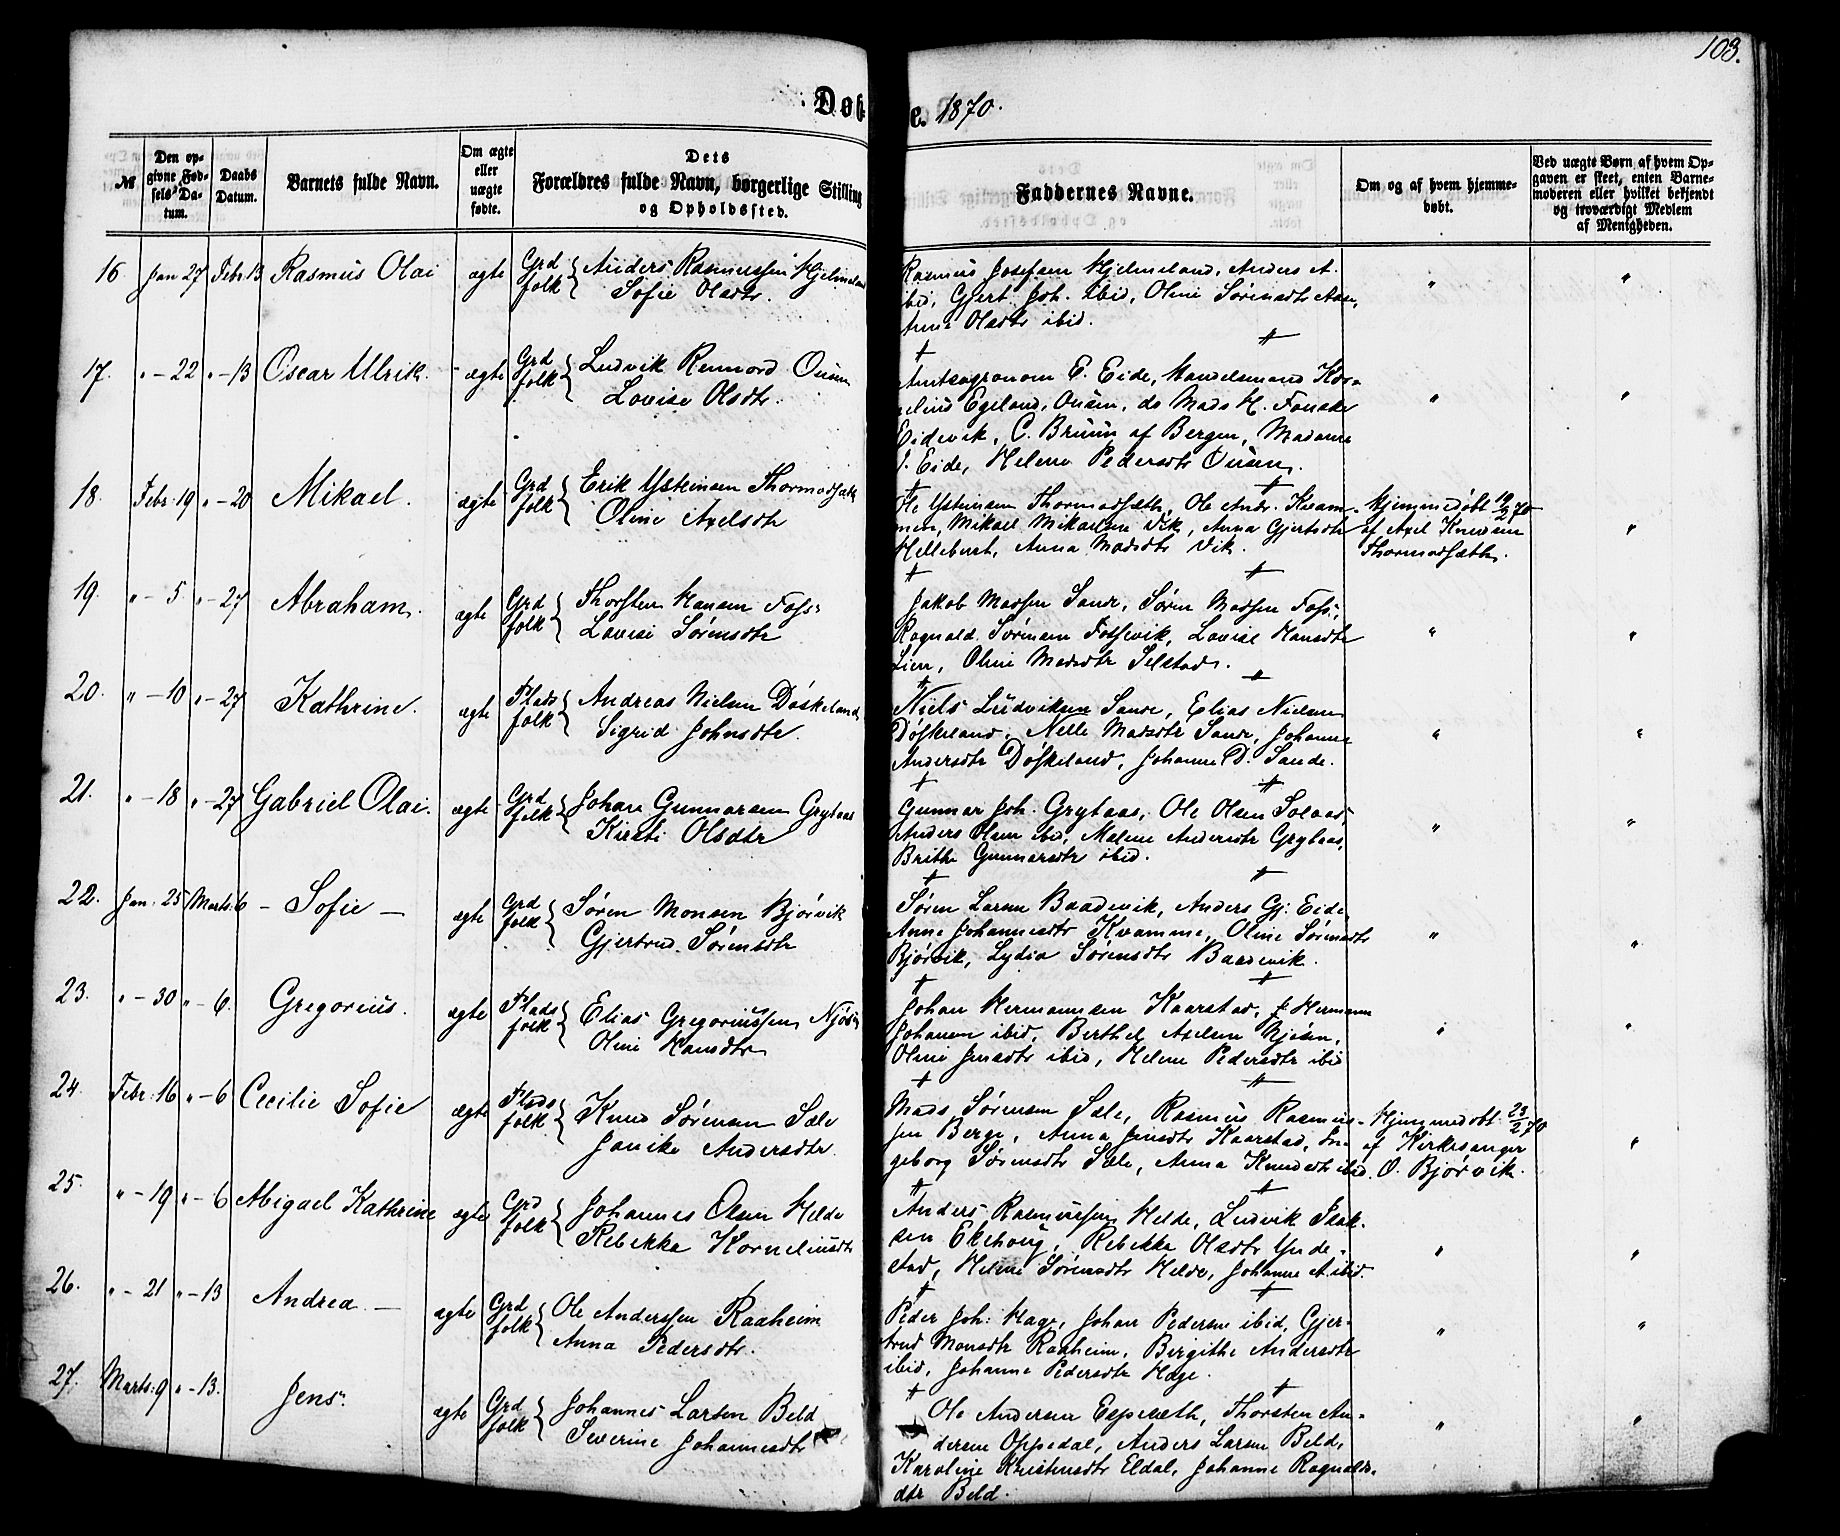 103.
Døbte. 1870.
№
Den opgivne Fødsels Datum.
Daabs Datum.
Barnets fulde Navn.
Om ægte eller uægte fødte.
Dets Forældres fulde Navn, borgerlige Stilling og Opholdssted.
Faddernes Navne.
Om og af hvem hjemmedøbt.
Ved uægte Børn af hvem Opgaven er skeet, enten Barnemoderen eller hvilket bekjendt og troværdigt Medlem af Menigheden.
16 Jan 27 Febr. 13 Rasmus Olai ægte Grd folk { Anders Rasmussen Hjelmeland
Sofie Olsdtr.
Rasmus Josefsen Hjelmeland, Anders A.
ibid, Gjert Joh. ibid, Oline Sørensdtr Aase,
Anna Olsdtr ibid. " "
17. " - 22 " - 13 Oscar Ulrik. ægte Grd folk { Ludvik Renmord Ousen
Lovise Olsdtr.
Amtsagronom E. Eide, Handelsmand Kor-
nelius Egeland, Ousen, do Mads H. Fonske
Eidevik, C. Bruun af Bergen, Madame
J. Eide, Helene Pedersdtr Ousen. " "
18. Febr. 19 " - 20 Mikael. ægte Grd folk { Erik Ysteinsen Thormodsæth
Oline Axelsdtr
Ole Ysteinsen Thormodsæth, Ole Andr. Kvam-
men, Mikael Mikaelsen Vik, Anna Gjertsdtr
Hellebust, Anna Madsdtr Vik.
Hjemmedøbt 19/2 70
af Axel Knudsen
Thormodsæth. "
19. " - 5 " - 27 Abraham. ægte Grd folk { Thorsten Hansen Foss
Lovise Sørensdtr
Jakob Madsen Sande, Søren Madsen Foss,
Ragnald Sørensen Fossevik, Lovise Hansdtr
Lien, Oline Madsdtr Selstad. " "
20. " - 10 " - 27 Kathrine. ægte Plads folk { Andreas Nielsen Døskeland
Sigrid Johnsdtr.
Niels Ludviksen Sande, Elias Nielsen
Døskeland, Nelle Madsdtr Sande, Johanne
Andersdtr Døskeland, Johanne D. Sande. " "
21. " - 18 " - 27 Gabriel Olai. ægte Grd folk { Johan Gunnarsen Grytaas
Kirsti Olsdtr
Gunnar Joh. Grytaas, Ole Olsen Solaas,
Anders Olsen ibid, Malene Andersdtr Grytaas,
Brithe Gunnarsdtr ibid. " "
22. Jan. 25 Marts 6 - Sofie - ægte Grd folk { Søren Monsen Bjørvik
Gjertrud Sørensdtr
Søren Larsen Baadevik, Anders Gj. Eide,
Anna Johannesdtr Kvamme, Oline Sørensdtr
Bjørvik, Lydia Sørensdtr Baadevik. " "
23. " - 30 " - 6. Gregorius. ægte Plads folk { Elias Gregoriussen Njøsen
Oline Hansdtr
Johan Hermannsen Kaarstad, Hermann
Johansen ibid, Berthel Axelsen Njøsen,
Oline Jensdtr ibid, Helene Pedersdtr ibid " "
24. Febr. 16 " - 6 Cecilie Sofie ægte Plads folk { Knud Sørensen Sæle
Janike Andersdtr.
Mads Sørensen Sæle, Rasmus Rasmus-
sen Berge, Anna Jensdtr Kaarstad, In-
geborg Sørensdtr Sæle, Anna Knudsdtr ibid.
Hjemmedøbt 23/2 70
af Kirkesanger
O. Bjørvik. "
25. " - 19 " - 6 Abigael Kathrine ægte Grd folk { Johannes Olsen Helde
Rebekka Korneliusdtr
Anders Rasmussen Helde, Ludvik Isak-
sen Ekehoug, Rebekka Olsdtr Ynde-
stad, Helene Sørensdtr Helde, Johanne A. ibid. " "
26. " - 21 " - 13 Andrea. - ægte Grd folk { Ole Anderssen Raaheim
Anna Pedersdtr.
Peder Joh. Hage, Johan Pedersen ibid, Gjer-
trud Monsdtr Raaheim, Birgithe Andersdtr
ibid, Johanne Pedersdtr Hage. " "
27. Marts 9 " - 13. Jens. ægte Grd folk { Johannes Larsen Beld
Severine Johannesdtr
Ole Andersen Espesæth, Thorsten An-
dersen Oppedal, Anders Larsen Beld,
Karoline Kristensdtr Eldal, Johanne Ragnalds-
dtr Beld. " "